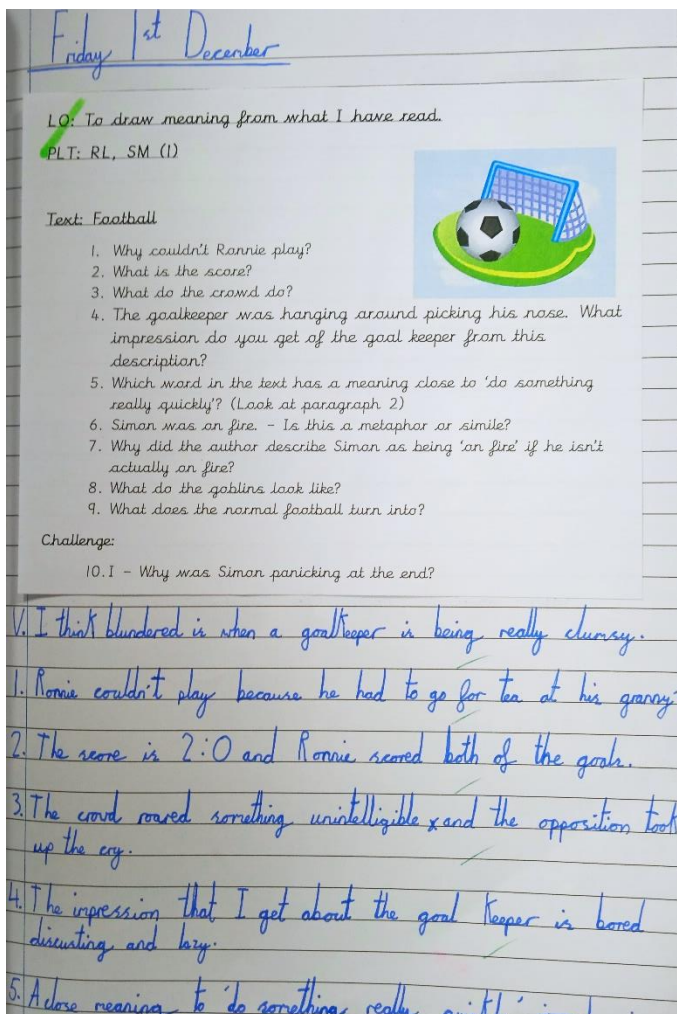 Friday 1st December
LO: To draw meaning from what I have read.
PLT: RL, SM (I)
Text: Football
1. Why couldn't Ronnie play?
2. What is the score?
3. What do the crowd do?
4. The goalkeeper was hanging around picking his nose. What
impression do you get of the goal keeper from this
description?
5. Which word in the text has a meaning close to 'do something
really quickly'? (Look at paragraph 2)
6. Simon was on fire. - Is this a metaphor or simile?
7. Why did the author describe Simon as being 'on fire' if he isn't
actually on fire?
8. What do the goblins look like?
9. What does the normal football turn into?
Challenge:
10. I - Why was Simon panicking at the end?
V. I think blundered is when a goalkeeper is being really clumsy.
1. Ronnie couldn't play because he had to go for tea at his granny
2. The score is 2:0 and Ronnie scored both of the goals.
3. The croud roared something unintelligible x and the opposition took
up the cry.
4. The inpression that I get about the goal keeper is bored
discusting and lazy.
5. A close meaning to 'do something really